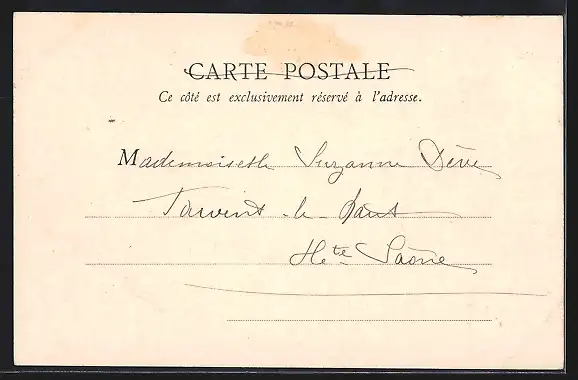 CARTE POSTALE
Ce côté est exclusivement réservé à l'adresse.
Mademoiselle Suzanne Dève
le Haut
Hte Saône